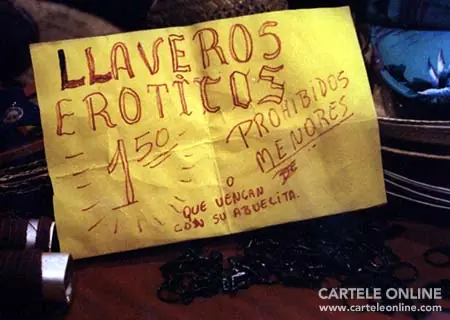 LLAVEROS
EROTICOS
1 50
PROHIBIDOS
MENORES
DE
O
QUE VENGAN
CON SU ABUELITA.
CARTELE ONLINE
www.carteleonline.com